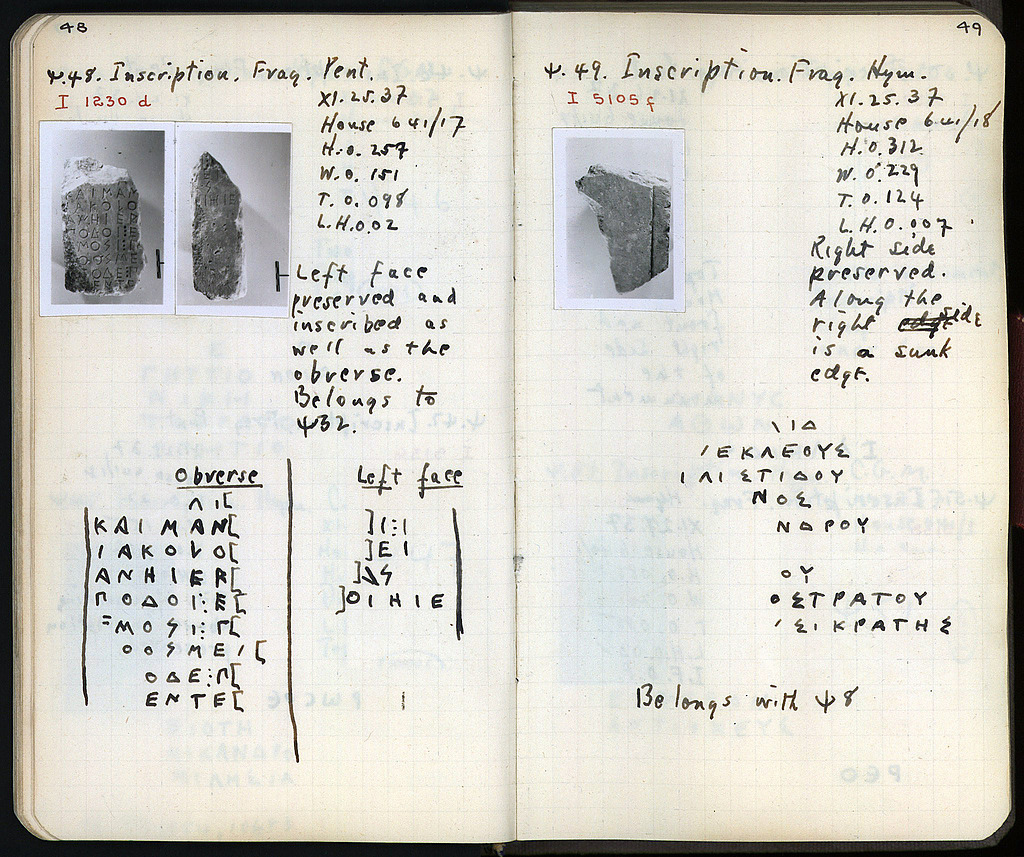 48
Ψ.48. Inscription. Frag. Pent.
I 1230 d
XI.25.37
House 641/17
H. 0.257
W. 0.151
T. 0.098
L.H. 0.02
Left face
preserved and
inscribed as
well as the
obverse.
Belongs to
Ψ32.
Obverse
ΛΙ[
ΚΑΙ ΜΑΝ[
ΙΑΚΟΙΟ[
ΑΝΗΙΕR[
ΠΟΔΟΙ:Ε[
ΜΟSΙ⋮Γ[
ΟΟSΜΕΙ[
ΟΔΕ⋮Π[
ΕΝΤΕ[
Left face
]Ι⋮Ι
]ΕΙ
]ΟΙΗΙΕ
Ι
49
Ψ.49. Inscription. Frag. Hym.
I 5105 f
XI.25.37
House 641/18
H. 0.312
W. 0.229
T. 0.124
L.H. 0.007
Right side
preserved.
Along the
right side
is a sunk
edge.
\ΙΔ
ΕΚΛΕΟΥΣ
ΙΛΙΣΤΙΔΟΥ
ΝΟΣ
ΝΔΡΟΥ
ΟΥ
ΟΣΤΡΑΤΟΥ
ΣΙΚΡΑΤΗΣ
Belongs with Ψ8